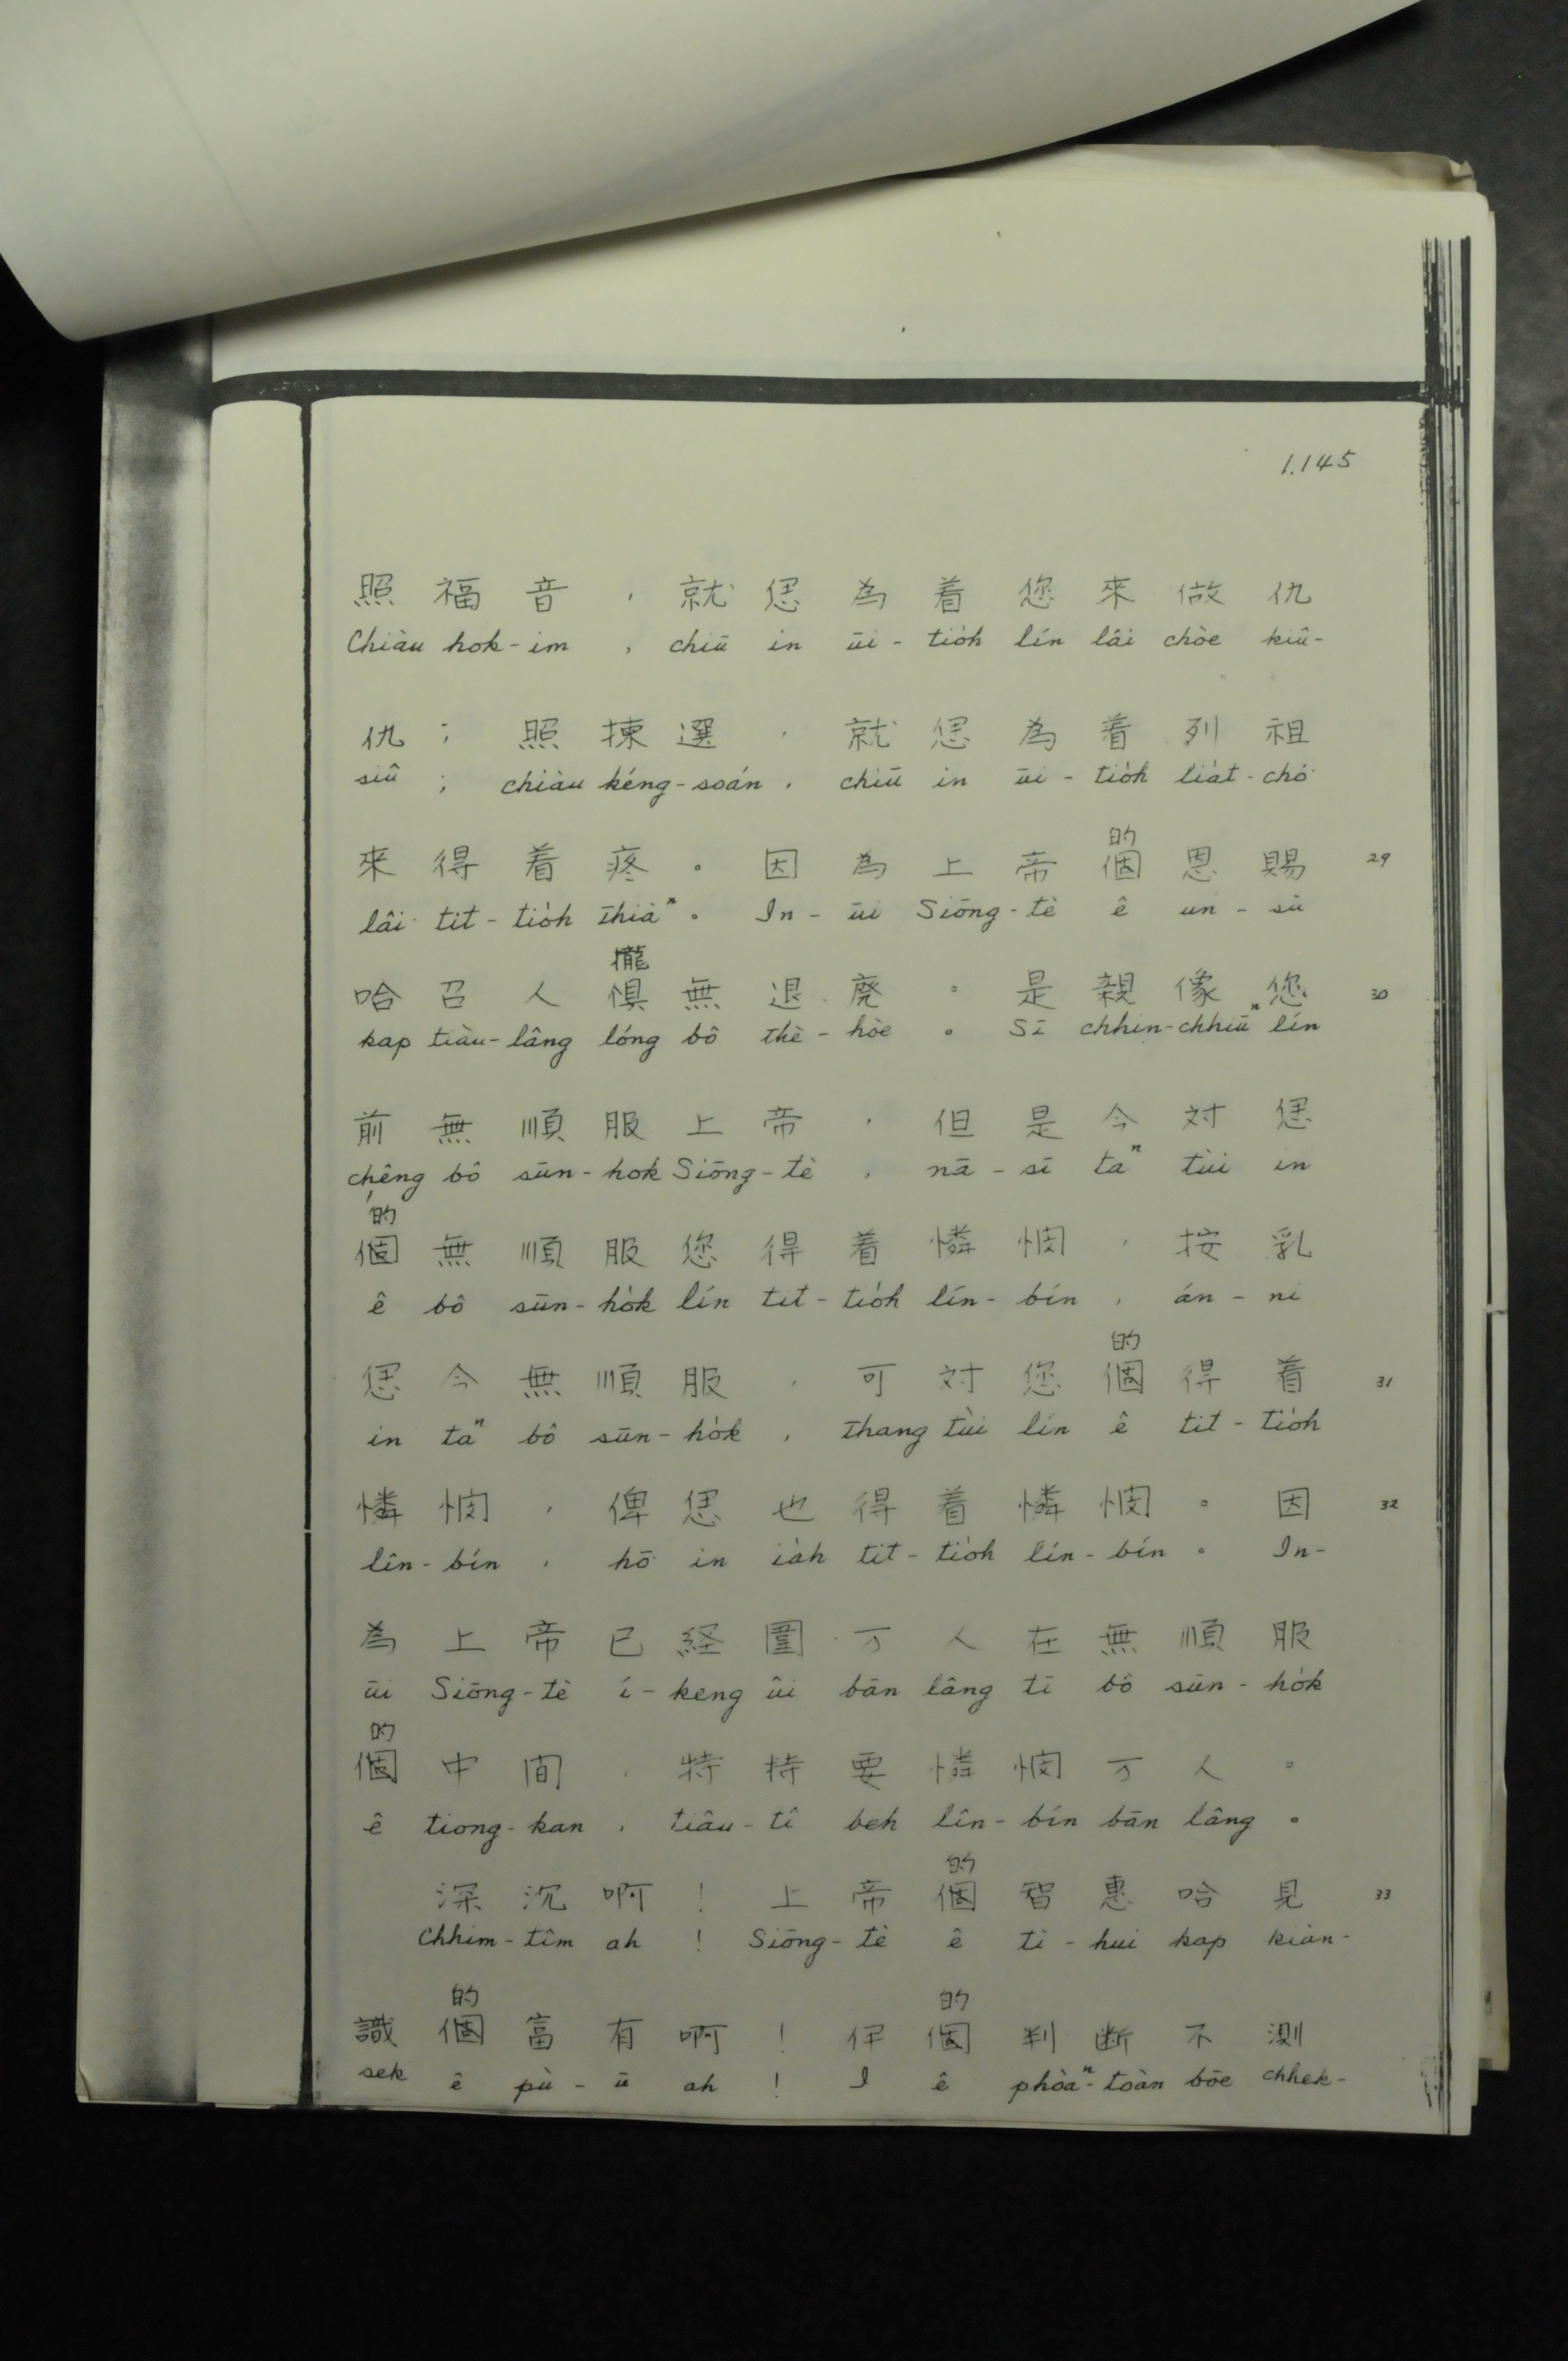 1.145
照福音，就偲為着您來做仇
Chiàu hok-im , chiū in ūi-tio̍h lín lâi chòe kiû-
仇；照揀選，就偲為着列祖
siû ; chiàu kéng-soán , chiū in ūi-tio̍h lia̍t-chó͘
的
來得着疼。因為上帝個恩賜 29
lâi tit-tio̍h thiàⁿ 。 In-ūi Siōng-tè ê un-sù
攏
哈召人惧無退廃。是親像您 30
kap tiàu-lâng lóng bô thè-hòe 。 Sī chhin-chhiūⁿ lín
前無順服上帝，但是今対偲
chêng bô sūn-hok Siōng-tè , nā-sī taⁿ tùi in
的
個無順服您得着憐憫，按乳
ê bô sūn-ho̍k lín tit-tio̍h lín-bín , án-ni
的
偲今無順服，可対您個得着 31
in taⁿ bô sūn-ho̍k , thang tùi lín ê tit-tio̍h
憐憫，俾偲也得着憐憫。因 32
lîn-bín , hō͘ in ia̍h tit-tio̍h lín-bín 。 In-
為上帝已経圍万人在無順服
ūi Siōng-tè í-keng ûi bān lâng tī bô sūn-ho̍k
的
個中间，特持要憐憫万人。
ê tiong-kan , tiâu-tî beh lîn-bín bān lâng 。
的
深沉啊！上帝個智惠哈見 33
Chhim-tîm ah ! Siōng-tè ê tì-hui kap kiàn-
的 的
識個富有啊！伊個判断不測
sek ê pù-ū ah ! I ê phòaⁿ-toàn bōe chhek-